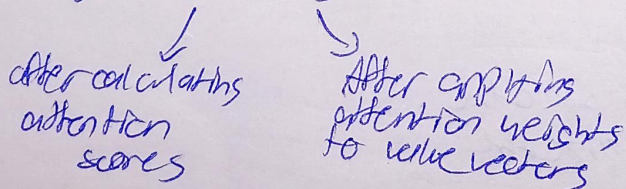 after calculating
attention
scores
After applying
attention weights
to value vectors